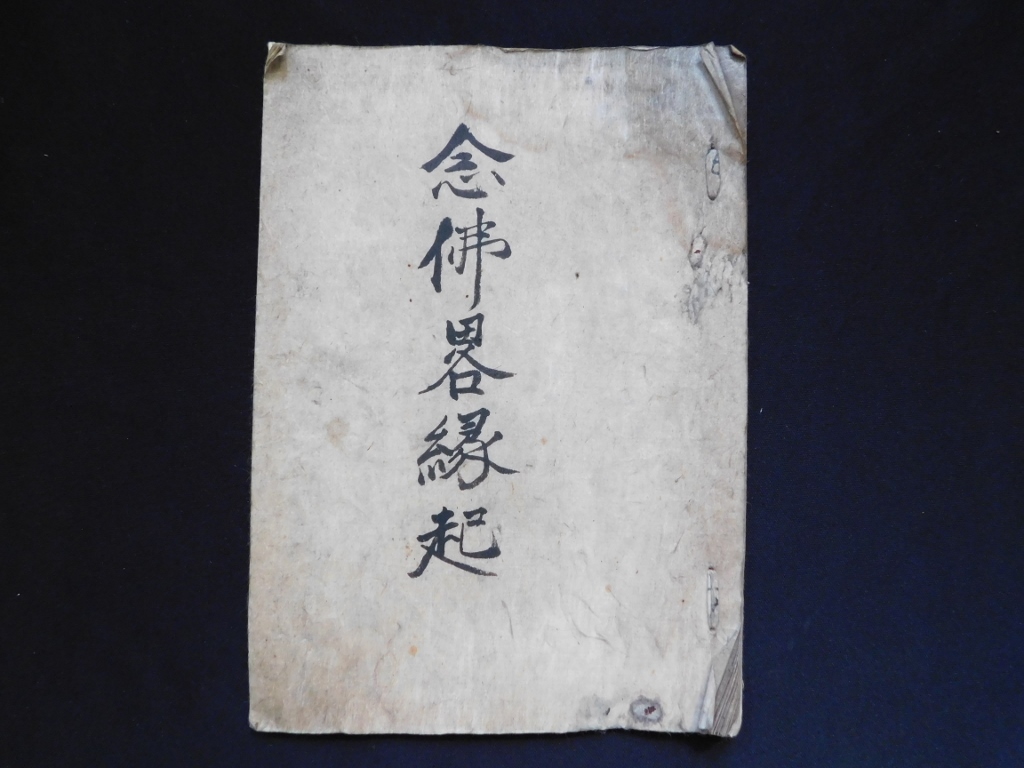 念佛畧縁起